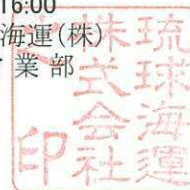 16:00
海運(株)
業部
琉球海運
株式会社
印